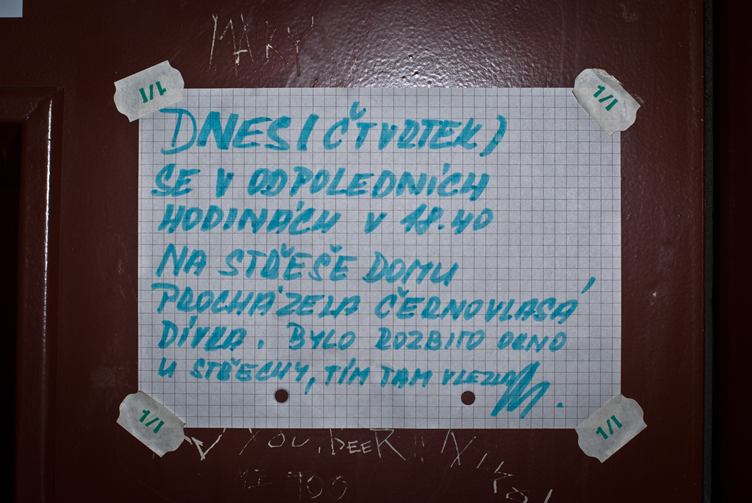 MAKY
1/1
1/1
DNES (ČTVRTEK)
SE V ODPOLEDNÍCH
HODINÁCH V 18.40
NA STŘEŠE DOMU
PROCHÁZELA ČERNOVLASÁ
DÍVKA. BYLO ROZBITO OKNO
U STŘECHY, TÍM TAM VLEZLA
1/1
1/1
YOU, BEER